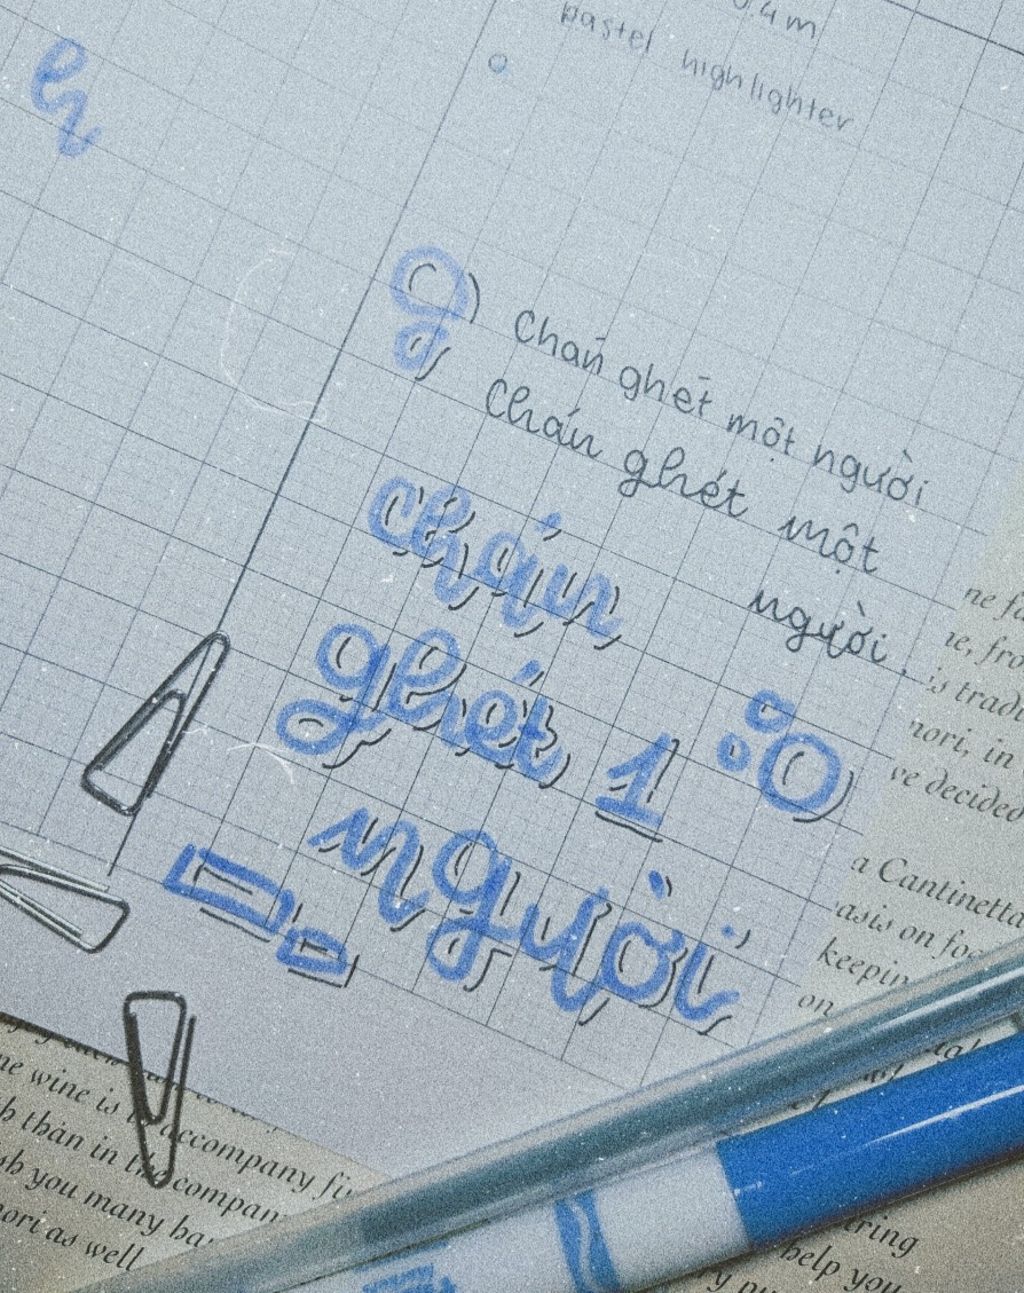 0.4 m
pastel highlighter
Chán ghét một người
Chán ghét một
người.
chán
ghét 1
người
ne fa
ie, fro
is tradi
nori, in
ve decided
a Cantinetta
asis on foo
keepin
on
ne wine is accompany fi
h than in the compan
sh you many ha
nori as well
tring
help you